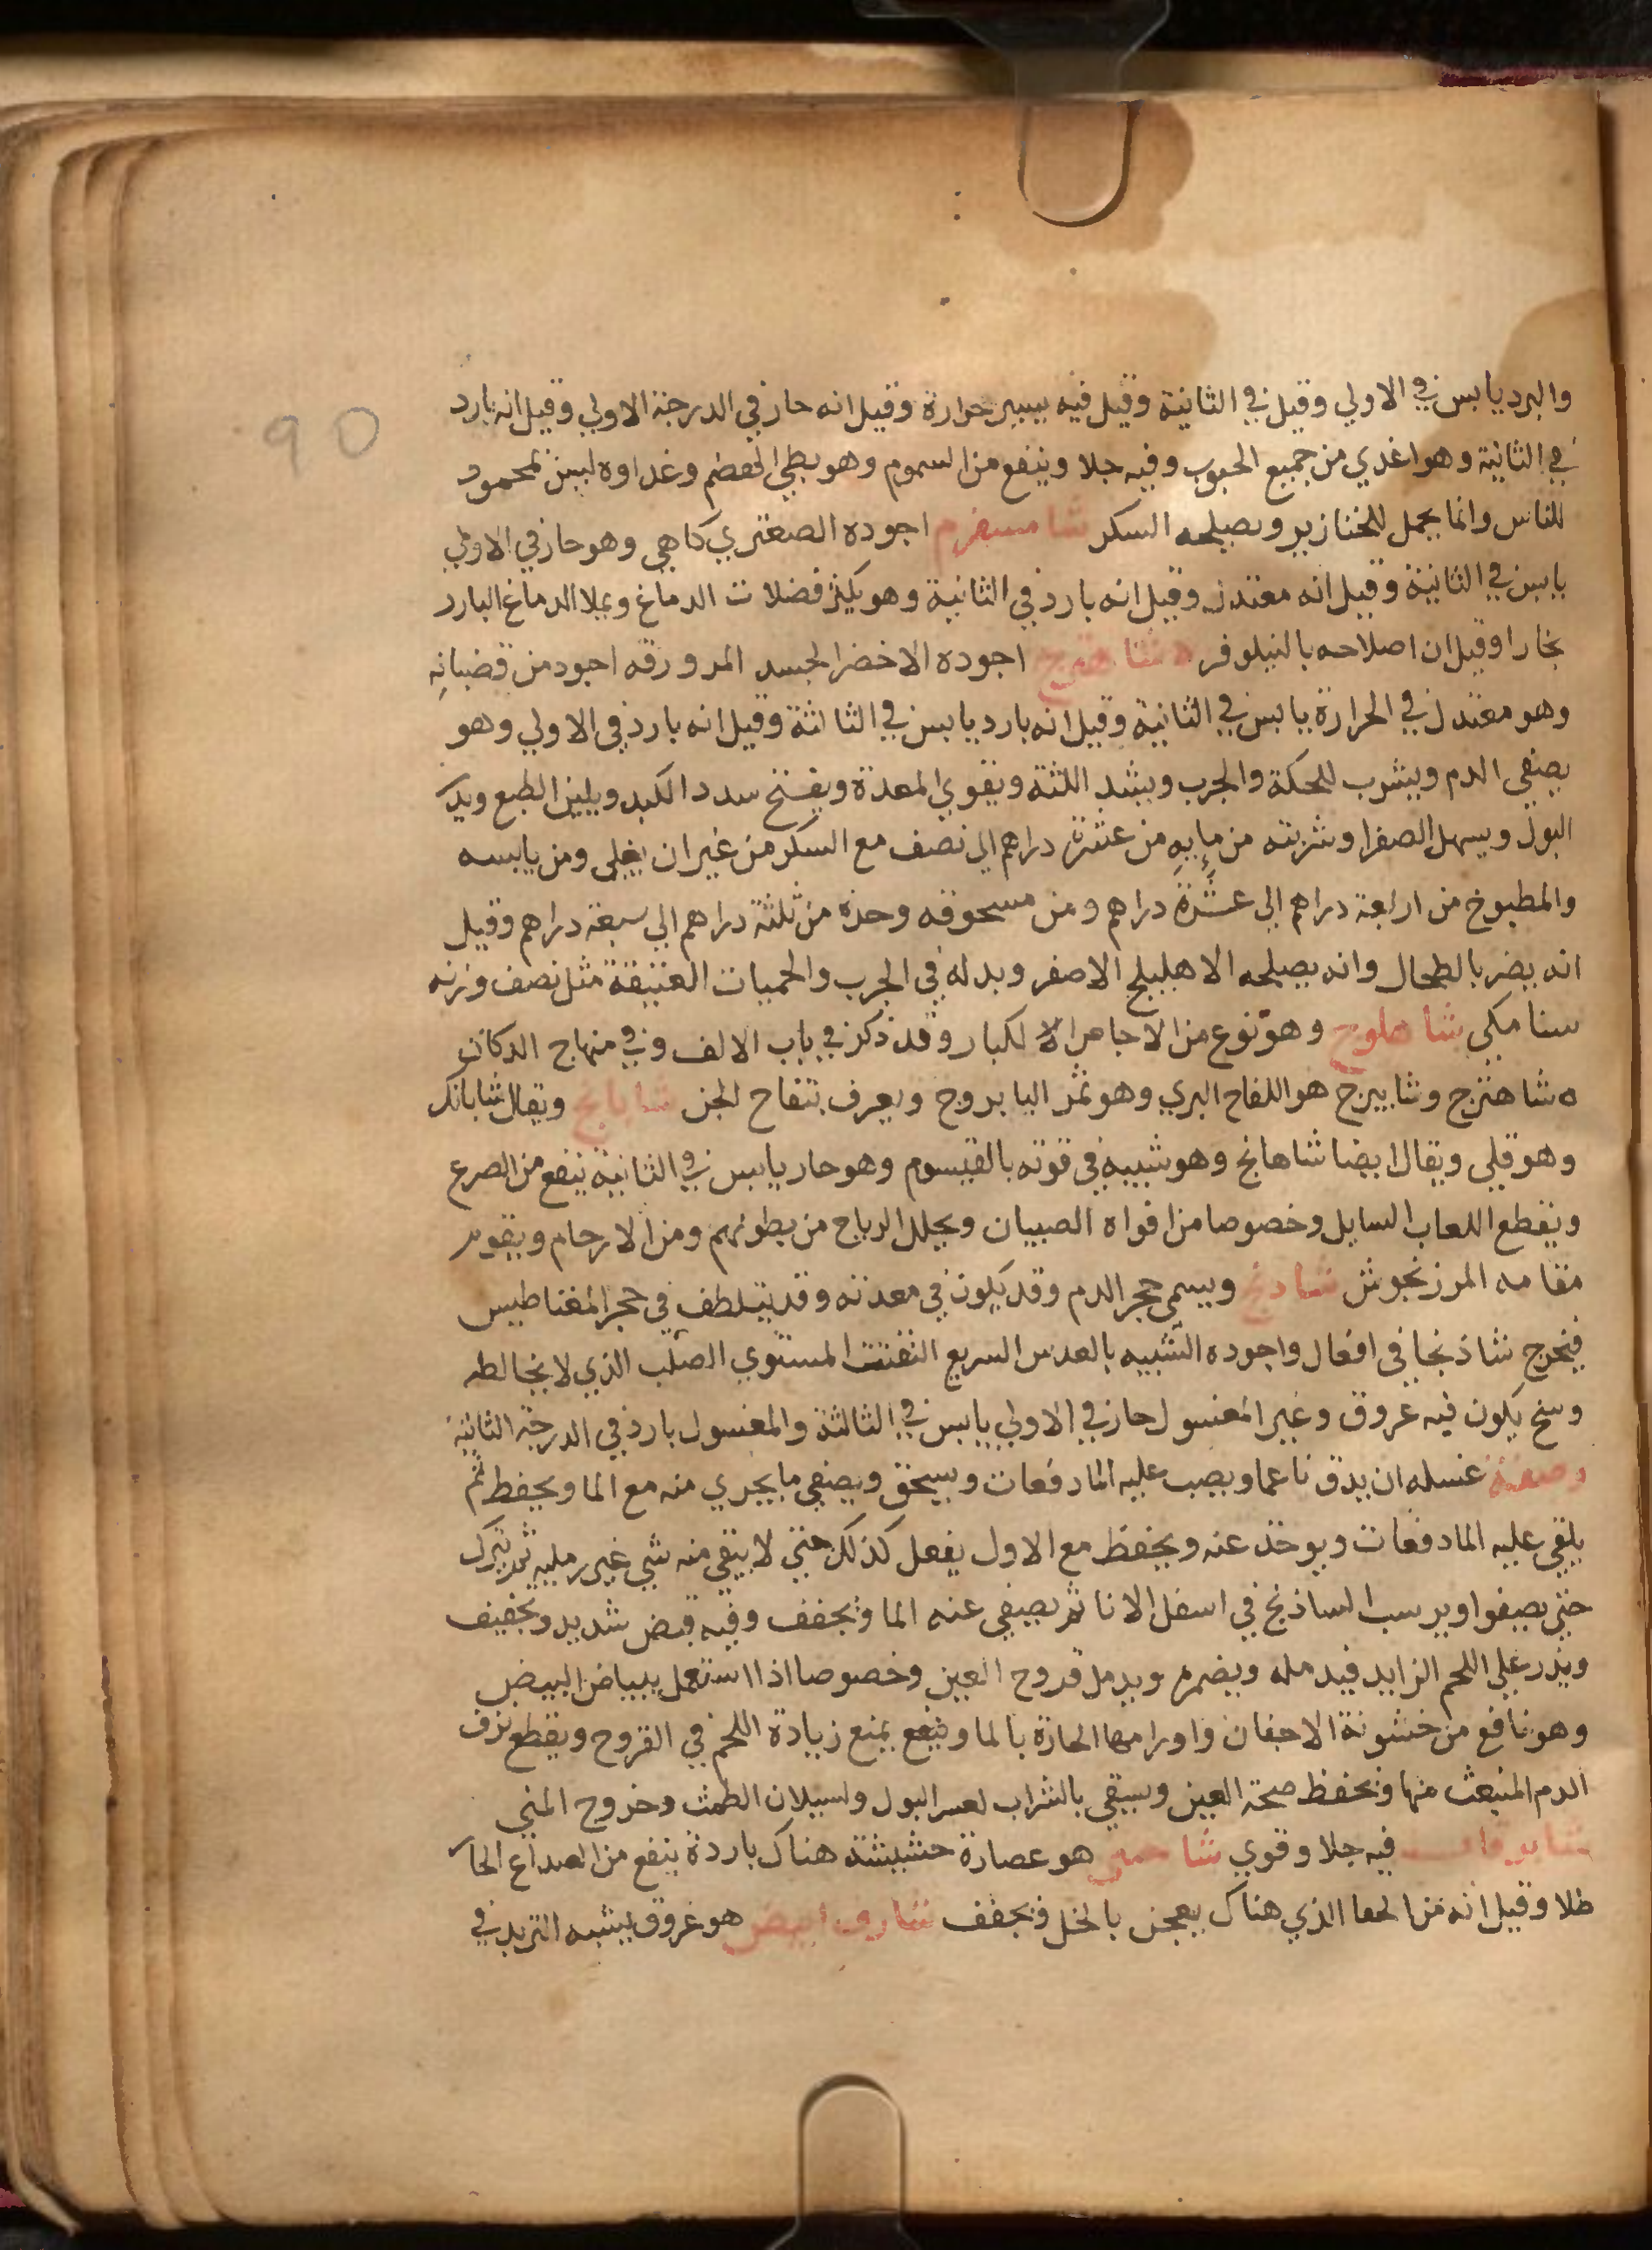 90
والبرد يابس في الاولي وقيل في الثانية وقيل فيه يسير حرارة وقيل انه حار في الدرجة الاولي وقيل انه بارد
في الثانية وهو اغدي من جميع الحبوب وفيه جلا وينفع من السموم وهو بطي الهضم وغداوه ليس بمحمود
للناس وانما يجمل للخنازير ويصلحه السكر شامسفرم اجوده الصعتري كاهي وهو حار في الاولي
يابس في الثانية وقيل انه معتدل وقيل انه بارد في الثانية وهو يكثر فضلات الدماغ ويملا الدماغ البارد
بخارا وقيل ان اصلاحه بالنيلوفر ه شاهترج اجوده الاخضر الجسد المر وورقه اجود من قضبانه
وهو معتدل في الحرارة يابس في الثانية وقيل انه بارد يابس في الثالثة وقيل انه بارد في الاولي وهو
يصفي الدم ويشرب للحكة والجرب ويشد اللثة ويقوي المعدة ويفتح سدد الكبد ويلين الطبع ويدر
البول ويسهل الصفرا وشربته من مايه من عشرة دراهم الي نصف مع السكر من غير ان يغلي ومن يابسه
والمطبوخ من اربعة دراهم الي عشرة دراهم ومن مسحوقه وحده من ثلثة دراهم الي سبعة دراهم وقيل
انه يضر بالطحال وانه يصلحه الاهليلج الاصفر وبدله في الجرب والحميات العتيقة مثل نصف وزنه
سنا مكي شاهلوج وهو نوع من الاجاص الكبار وقد ذكر في باب الالف وفي منهاج الدكان
ه شاهترج وشابيرج هو اللفاح البري وهو ثمر اليابروح ويعرف بتفاح الجن شابانج ويقال شابانك
وهو قلي ويقال ايضا شاهانج وهو شبيه في قوته بالقيسوم وهو حار يابس في الثانية ينفع من الصرع
ويقطع اللعاب السايل وخصوصا من افواه الصبيان ويحلل الرياح من بطونهم ومن الارحام ويقوم
مقامه المرزنجوش شادنج ويسمي حجر الدم وقد يكون في معدنه وقد يتلطف في حجر المغناطيس
فيخرج شاذنجا في افعال واجوده الشبيه بالعدس السريع التفتت المستوي الصلب الذي لا يخالطه
وسخ يكون فيه عروق وغير المغسول حار في الاولي يابس في الثالثة والمغسول بارد في الدرجة الثانية
وصفة غسله ان يدق ناعما ويصب عليه الما دفعات ويسحق ويصفي ما يجري منه مع الما ويحفظ ثم
يلقي عليه الما دفعات ويوخذ عنه ويحفظ مع الاول يفعل كذلك حتي لا يبقي منه شي غير رمليه ثم يترك
حتي يصفوا ويرسب الساذنج في اسفل الانا ثم يصفي عنه الما ويجفف وفيه قبض شديد وتجفيف
ويذر علي اللحم الزايد فيدمله ويضمره ويدمل قروح العين وخصوصا اذا استعمل ببياض البيض
وهو نافع من خشونة الاجفان واورامها الحارة بالما وينفع يمنع زيادة اللحم في القروح ويقطع نزف
الدم المنبعث منها ويحفظ صحة العين ويسقي بالشراب لعسر البول ولسيلان الطمث وخروج المني
فيه جلا وقوي هو عصارة حشيشة هناك باردة ينفع من الصداع الحار
طلا وقيل انه من الحما الذي هناك يعجن بالخل فيجفف ابيض هو عروق يشبه التربد في